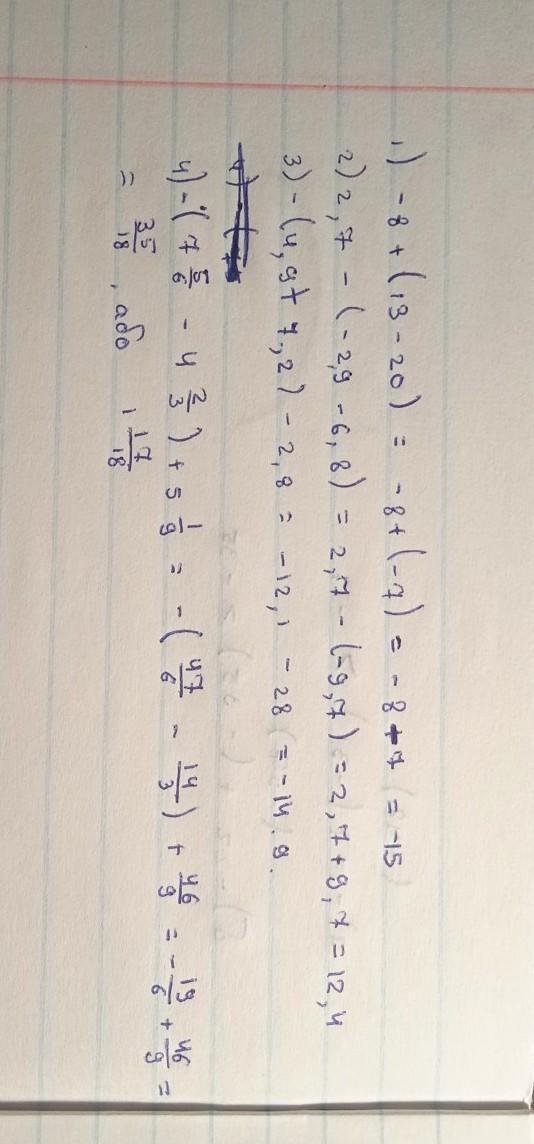 1) -8 + (13 - 20) = -8 + (-7) = -8 + 7 = -15
2) 2,7 - (-2,9 - 6,8) = 2,7 - (-9,7) = 2,7 + 9,7 = 12,4
3) - (4,9 + 7,2) - 2,8 = -12,1 - 28 = -14.9.
4) - (7 5/6 - 4 2/3) + 5 1/9 = - (47/6 - 14/3) + 46/9 = - 19/6 + 46/9 =
= 35/18, або 1 17/18